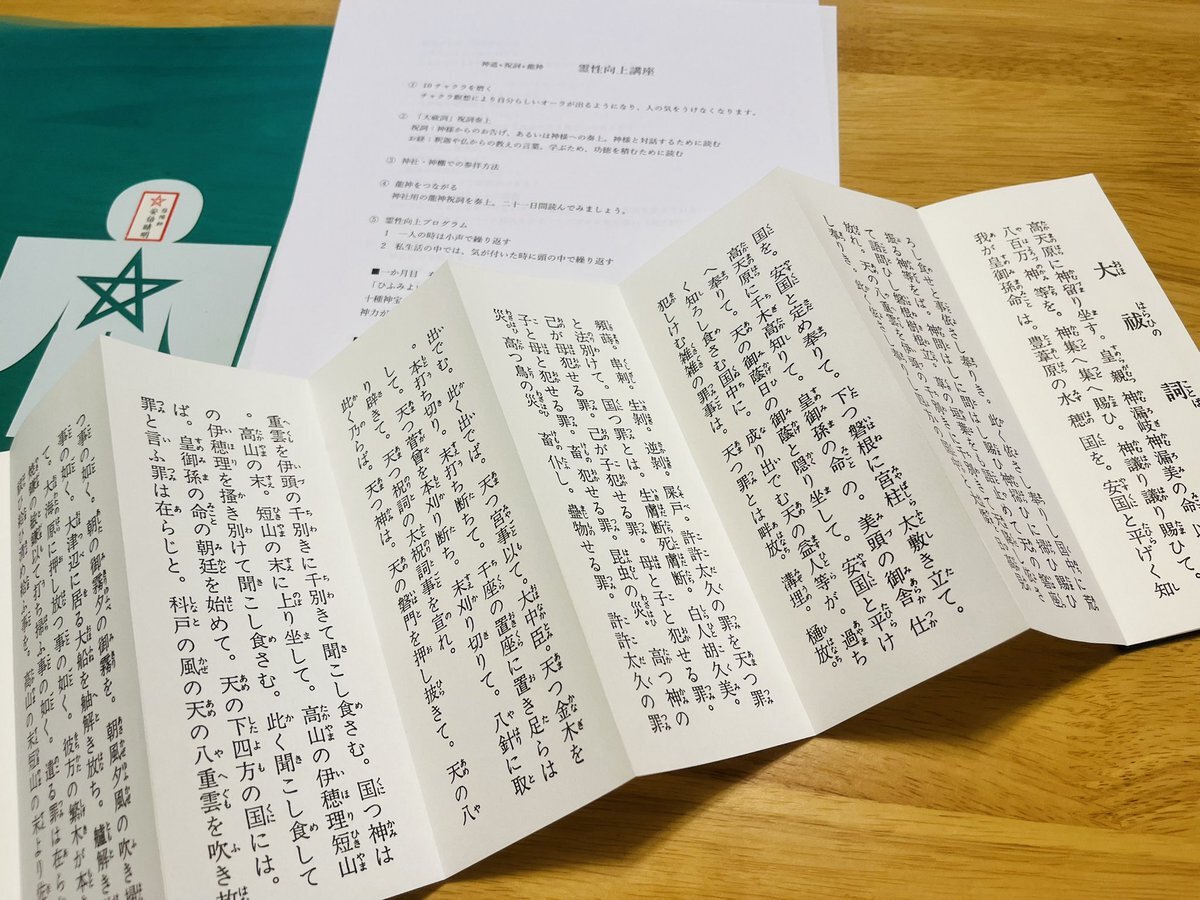 神道・祝詞・龍神　霊性向上講座
① 10チャクラを磨く
チャクラ瞑想により自分らしいオーラが出るようになり、人の気をうけなくなります。
② 「大祓詞」祝詞奏上
祝詞：神様からのお告げ、あるいは神様への奏上。神様と対話するために読む
お経：釈迦や仏からの教えの言葉。学ぶため、功徳を積むために読む
③ 神社・神棚での参拝方法
④ 龍神をつながる
神社用の龍神祝詞を奏上。二十一日間読んでみましょう。
⑤ 霊性向上プログラム
1 一人の時は小声で繰り返す
2 私生活の中では、気が付いた時に頭の中で繰り返す
■一か月目
「ひふみよい
十種神宝
神力が
安倍晴明
大祓詞
高天原に神留り坐す。皇親神漏岐神漏美の命
八百万の神等を。神集へ集へ賜ひ。神議り議り賜ひて。
我が皇御孫命は。豊葦原の水穂国を。安国と平げく知
ろし食せと事依さし奉りき。此く依さし奉りし国中に荒
振る神等をば。神問はしに問はし賜ひ。神掃ひに掃ひ
て語問ひし磐根樹根立。草の片葉をも事止めて。天の磐座
放れ。天の八重雲を
国を。安国と定め奉りて。下つ磐根に宮柱太敷き立て。
高天原に千木高知りて。皇御孫の命の。美頭の御舎仕
へ奉りて。天の御蔭日の御蔭と隠り坐して。安国と平け
く知ろし食さむ国中に。成り出でむ天の益人等が。過ち
犯しけむ雑雑の罪事は。天つ罪とは畔放。溝埋。樋放
頻蒔。串刺。生剥。逆剥。屎戸。許許太久の罪を天つ罪
と法別けて。国つ罪とは。生膚断死膚断。白人胡久美。
己が母犯せる罪。己が子犯せる罪。母と子と犯せる罪。
子と母と犯せる罪。畜犯せる罪。昆虫の災。高つ神の
災。高つ鳥の災。畜仆し。蠱物せる罪。許許太久の罪
出でむ。此く出でば。天つ宮事以て。大中臣。天つ金木を
。本打ち切り。末打ち断ちて。千座の置座に置き足らは
して。天つ菅曾を本刈り断ち。末刈り切りて。八針に取
り辟きて。天つ祝詞の太祝詞事を宣れ。
此く乃らば。天つ神は。天の磐門を押し披きて。天の八
重雲を伊頭の千別きに千別きて聞こし食さむ。国つ神は
。高山の末。短山の末に上り坐して。高山の伊穂理短山
の伊穂理を掻き別けて聞こし食さむ。此く聞こし食して
ば。皇御孫の命の朝廷を始めて。天の下四方の国には。
罪と言ふ罪は在らじと。科戸の風の天の八重雲を吹き放
つ事の如く。朝の御霧夕の御霧を。朝風夕風の吹き掃
事の如く。大津辺に居る大船を舳解き放ち。艫解き
て。大海原に押し放つ事の如く。彼方の繁木が本を
焼鎌の敏鎌以て打ち掃ふ事の如く。遺る罪は在ら
祓へ給ひ清め給ふ事を。高山の末短山の末より佐